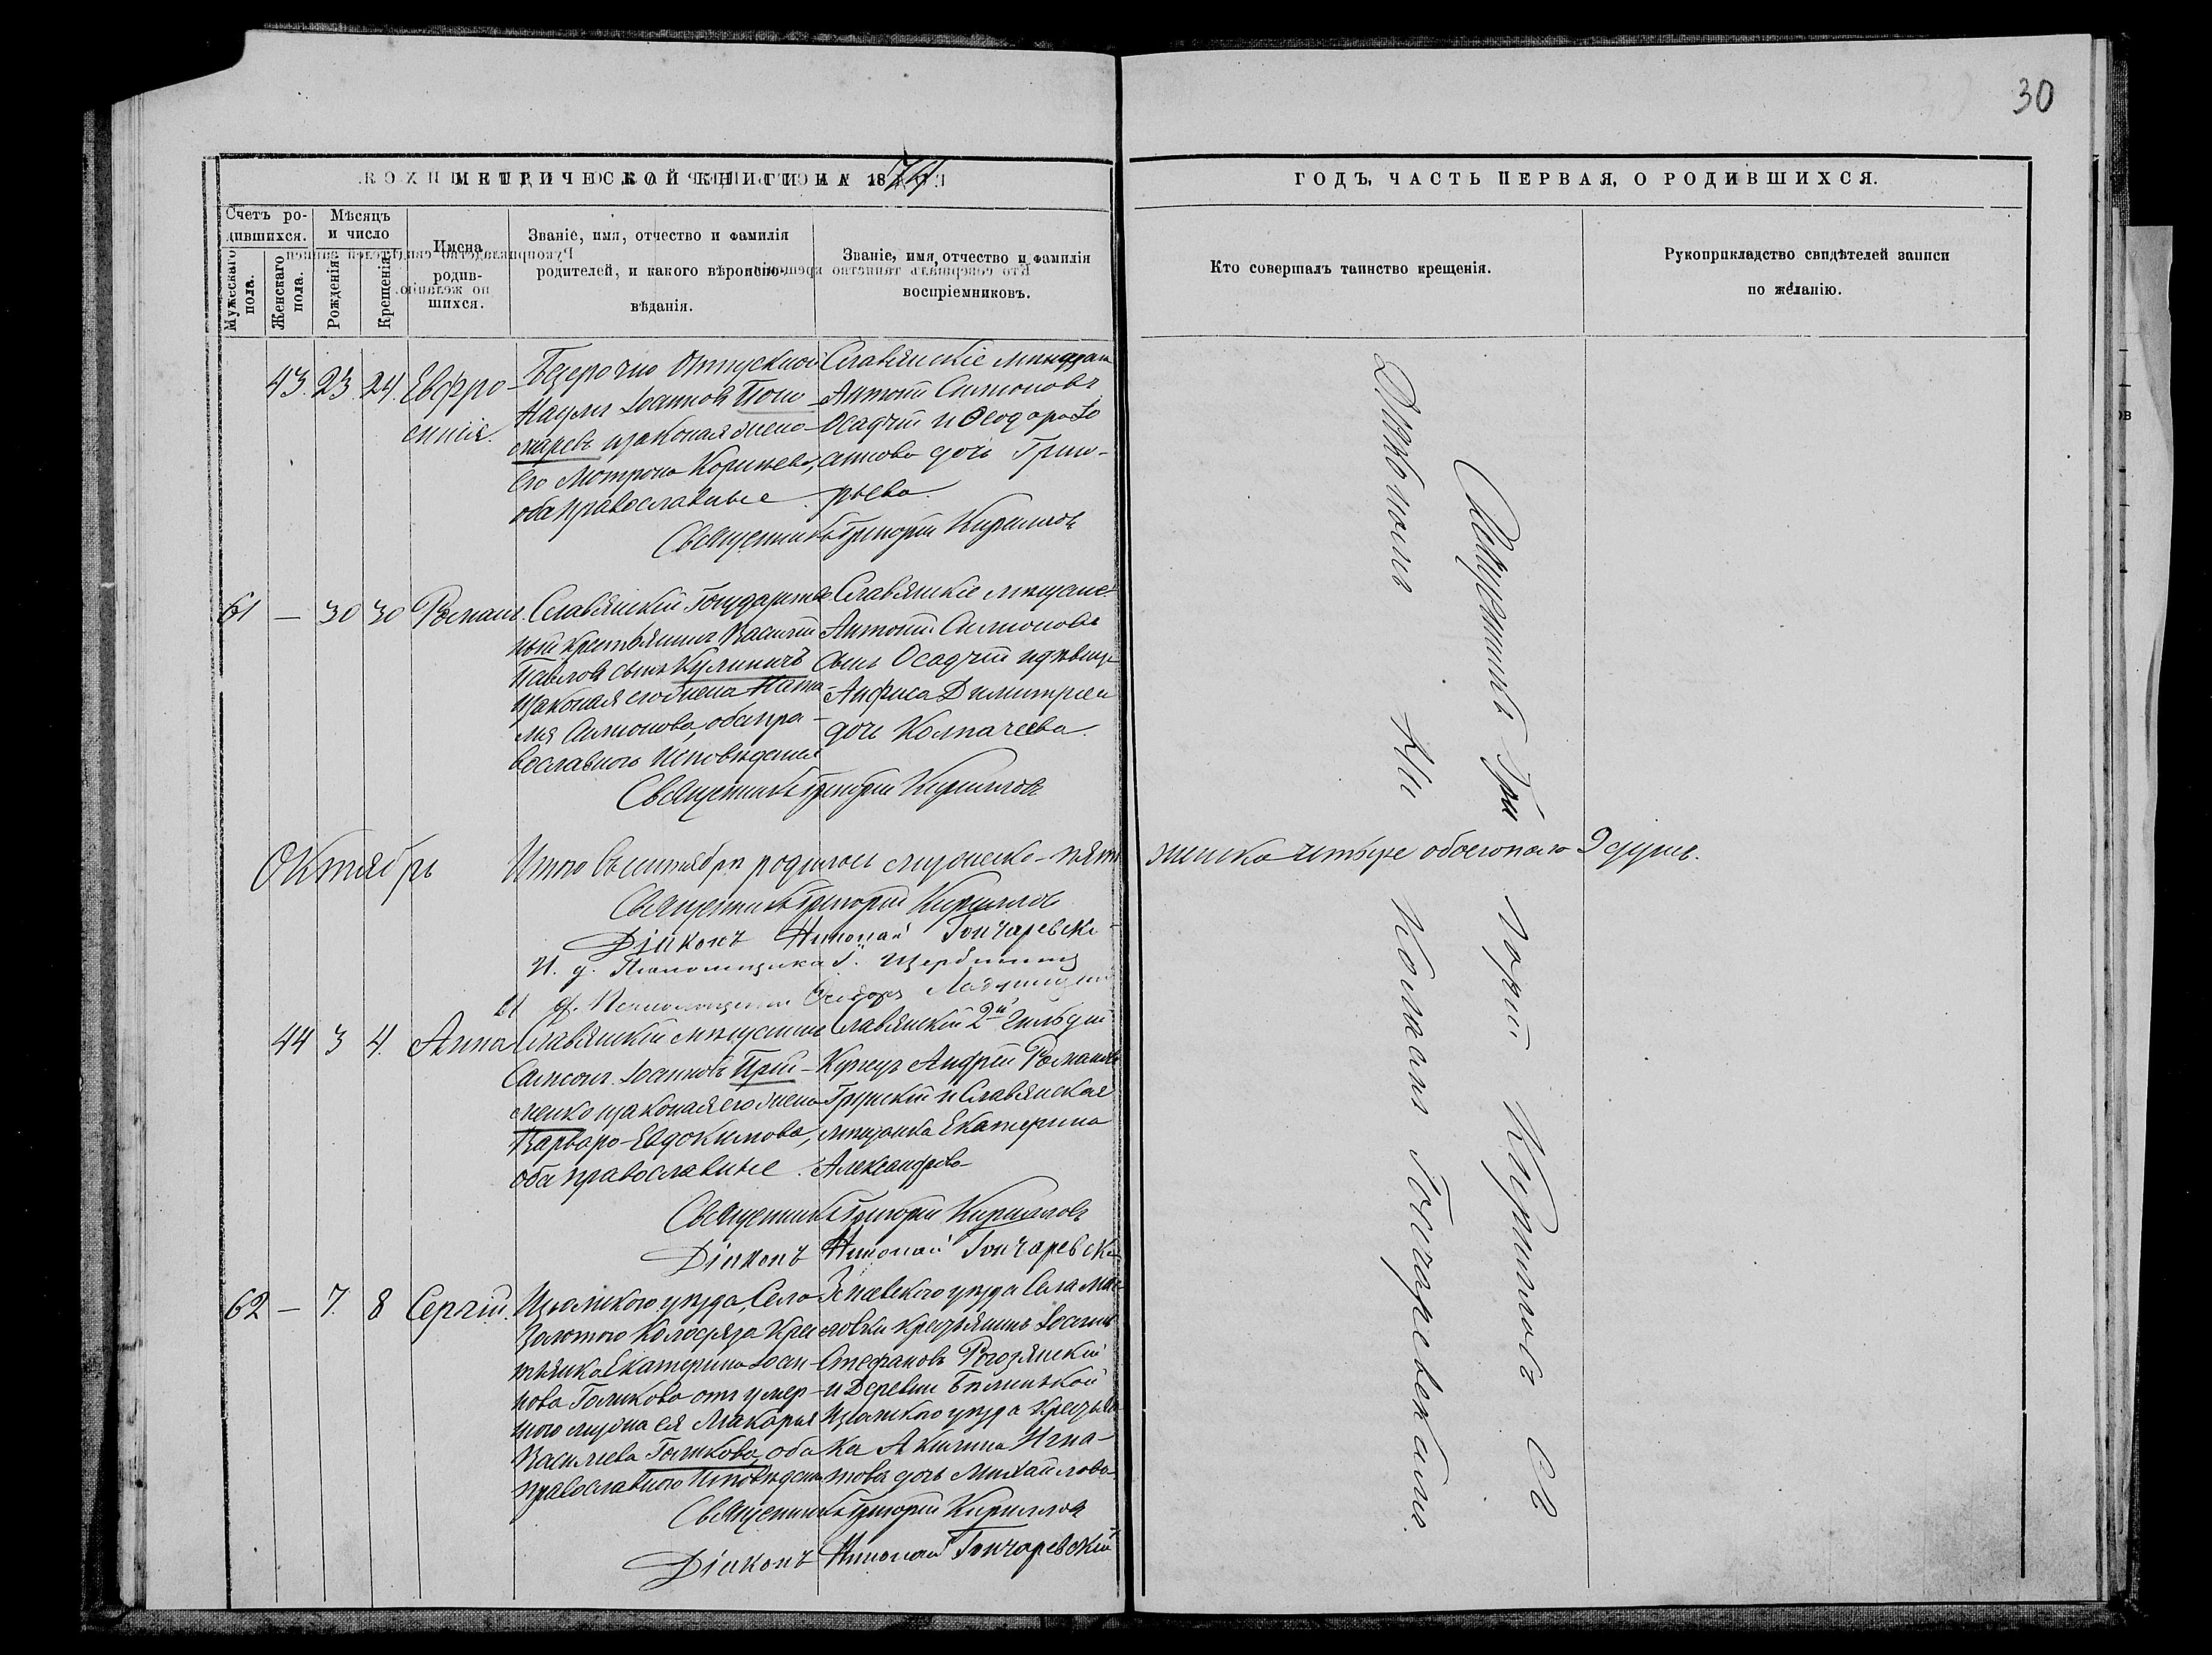 30
МЕТРИЧЕСКОЙ КНИГИ НА 1874
ГОДЪ, ЧАСТЬ ПЕРВАЯ, О РОДИВШИХСЯ.
Счетъ ро-
дившихся.
Мужескаго пола.
Женскаго пола.
Мѣсяцъ
и число
Рожденія.
Крещенія.
Имена
родив-
шихся.
Званіе, имя, отчество и фамилія
родителей, и какого вѣроиспо-
вѣданія.
Званіе, имя, отчество и фамилія
воспріемниковъ.
Кто совершалъ таинство крещенія.
Рукоприкладство свидѣтелей записи
по желанію.
43. 23. 24. Евфро-
синія.
Безсрочно Отпускной
Іоанновъ
законая жена
его Мотрона Корнева,
оба православные
Славянскіе мѣщане
Антоній Симоновъ
Осадчій и Ѳеодора Іо
аннова дочь Григо-
рьева.
Священникъ Григорій Кирилловъ
61 — 30 30 Романъ.
Славянскій Государствен
ный крестьянинъ Василій
Павловъ сынъ Кулиничъ
Законая его жена Ната-
лія Симонова, оба пра-
вославнаго Исповѣданія
Славянскіе мѣщане
Антоній Симоновъ
сынъ Осадчій и дѣвица
Анфиса Димитріев
дочь Колпачева.
Священникъ Григорій Кирилловъ
Октябрь
Итого въ сентябрѣ родилось мужеска - пять
женска четыре обоего пола 9 душъ.
Священникъ Григорій Кирилловъ
Діаконъ Николай Гончаревскі
И. д. Псаломщика
И д. Псаломщика Ѳеодоръ
44 3 4. Анна
Славянскій мѣщанинъ
Самсонъ Іоанновъ Прій-
менко законая его жена
Варвара Евдокимова,
оба православные.
Славянскій 2й Гильдіи
Купецъ Андрей Романовъ
Грунскій и Славянская
мѣщанка Екатерина
Александрова
Священникъ Григорій Кирилловъ
Діаконъ Николай Гончаревскі
62 — 7. 8 Сергій.
Изюмскаго уѣзда, Села
Золотого Колодязя Крес
тьянка Екатерина Іоан-
нова Голикова отъ умер-
шого мужа ея Макарія
Василіева Голикова, оба
православного Исповѣдан
Зѣневского уѣзда Села Мас-
ловки крестьянинъ Іоаннъ
Стефановъ Рогозянскій
и Деревни Бѣленькой
Изюмского уѣзда крестьян
ка Акилина Игна-
това дочь Михайлова.
Священникъ Григорій Кирилловъ
Діаконъ Николай Гончаревскій
Священникъ Григорій Кирилловъ съ
Діакономъ Николаемъ Гончаревскимъ.